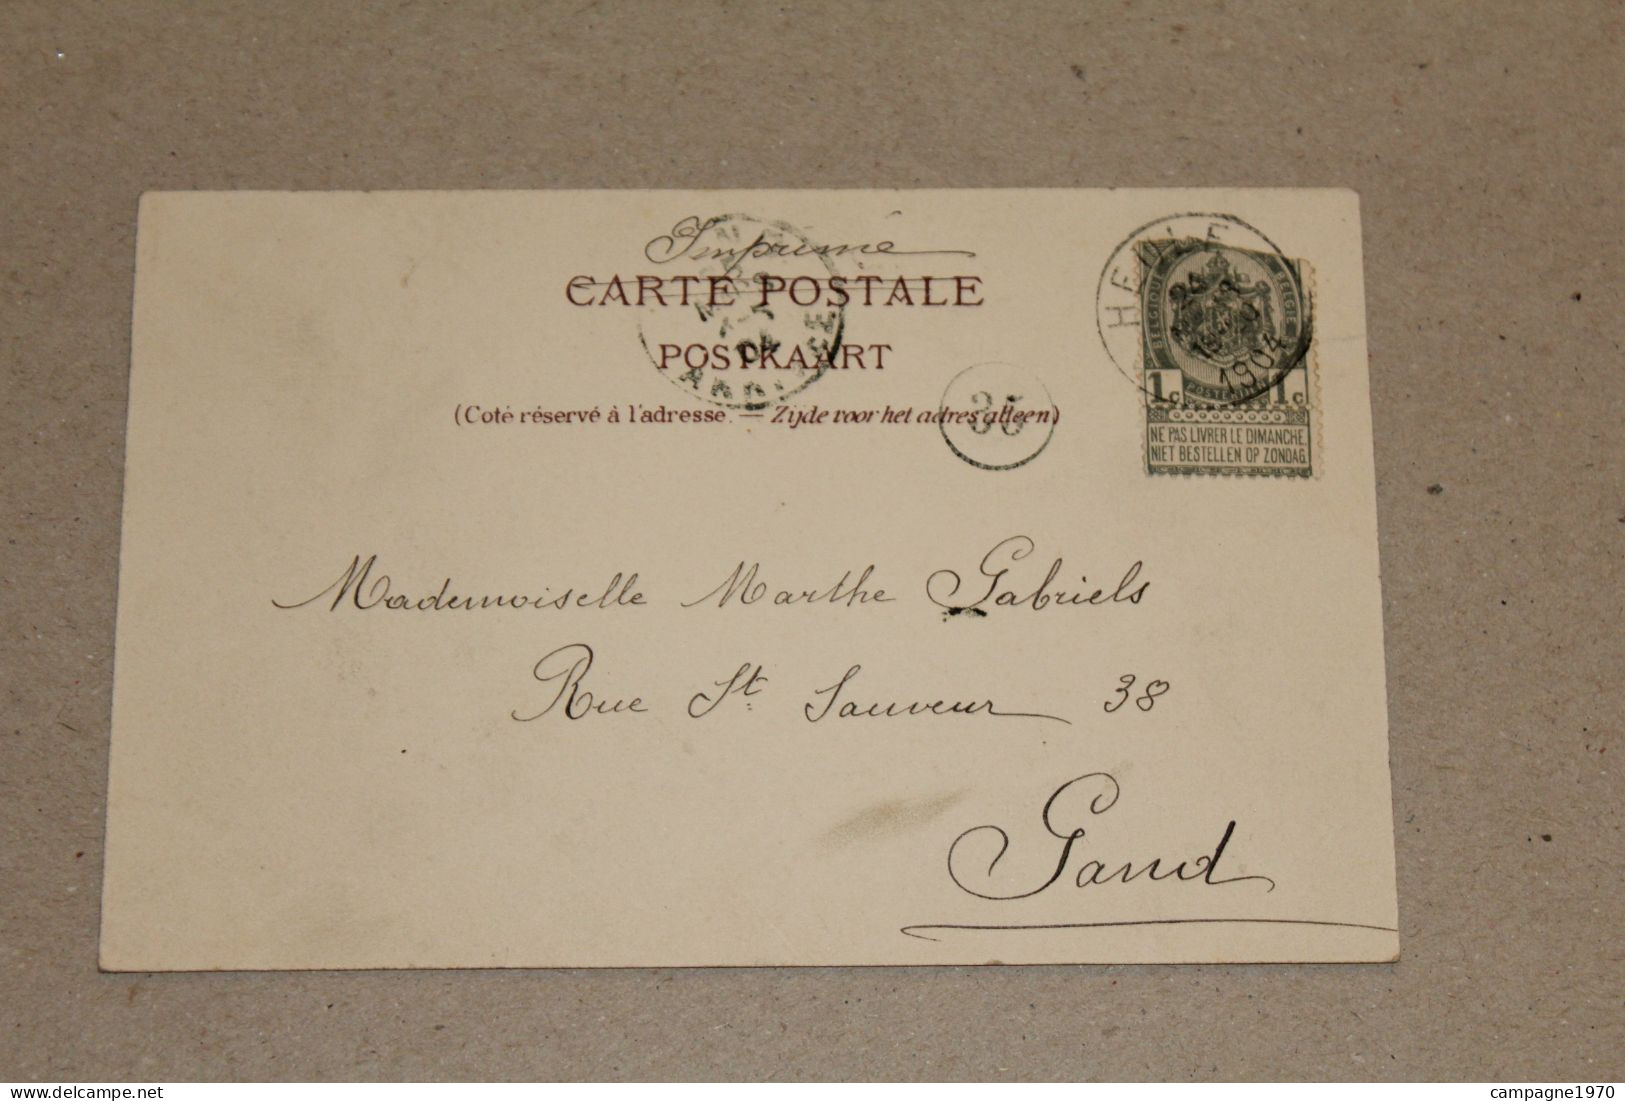 Imprimé
CARTE POSTALE
POSTKAART
(Coté réservé à l'adresse. — Zijde voor het adres alleen)
35
HEULE
1904
BELGIQUE
BELGIË
POSTERIJEN
1c 1c
NE PAS LIVRER LE DIMANCHE.
NIET BESTELLEN OP ZONDAG.
Mademoiselle Marthe Gabriels
Rue St. Sauveur 38
Gand
campagne1970